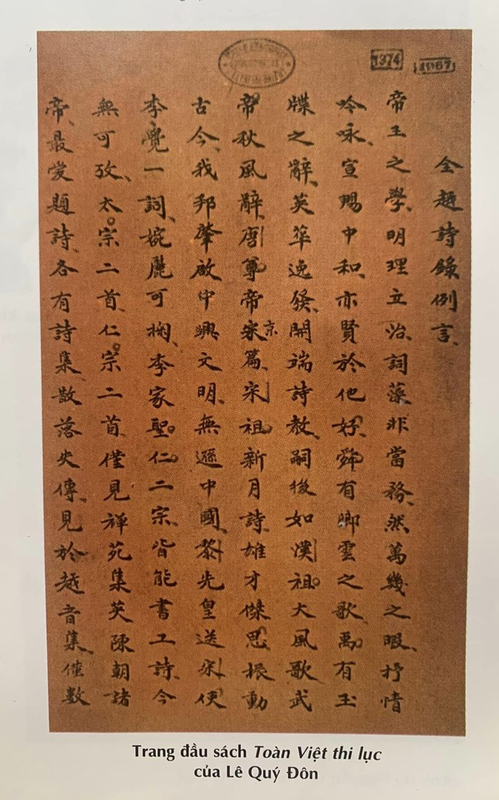 1374
全越詩錄例言
帝王之學明理立治詞藻非當務然萬幾之暇抒情
吟咏宣賜中和亦賢於他好舜有卿雲之歌禹有玉
牒之辭英華逸發開端詩教嗣後如漢祖大風歌武
帝秋風辭唐尊帝京篇宋祖新月詩雄才傑思振動
古今我邦肇啟中興文明無遜中國黎先皇送宋使
李覺一詞婉麗可掬李家聖仁二宗皆能書工詩今
無可攷太宗二首仁宗二首僅見禪苑集英陳朝諸
帝最愛題詩各有詩集散落失傳見於越音集僅數
Trang đầu sách Toàn Việt thi lục
của Lê Quý Đôn